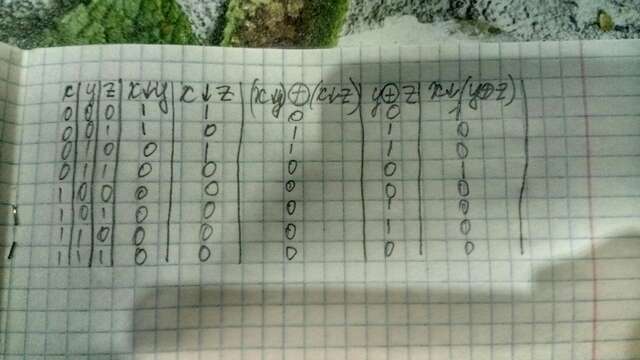 x y z x↓y x↓z (x↓y)⊕(x↓z) y⊕z x↓(y⊕z)
0 0 0 1 1 0 0 1
0 0 1 1 0 1 1 0
0 1 0 0 1 1 1 0
0 1 1 0 0 0 0 1
1 0 0 0 0 0 0 0
1 0 1 0 0 0 1 0
1 1 0 0 0 0 1 0
1 1 1 0 0 0 0 0